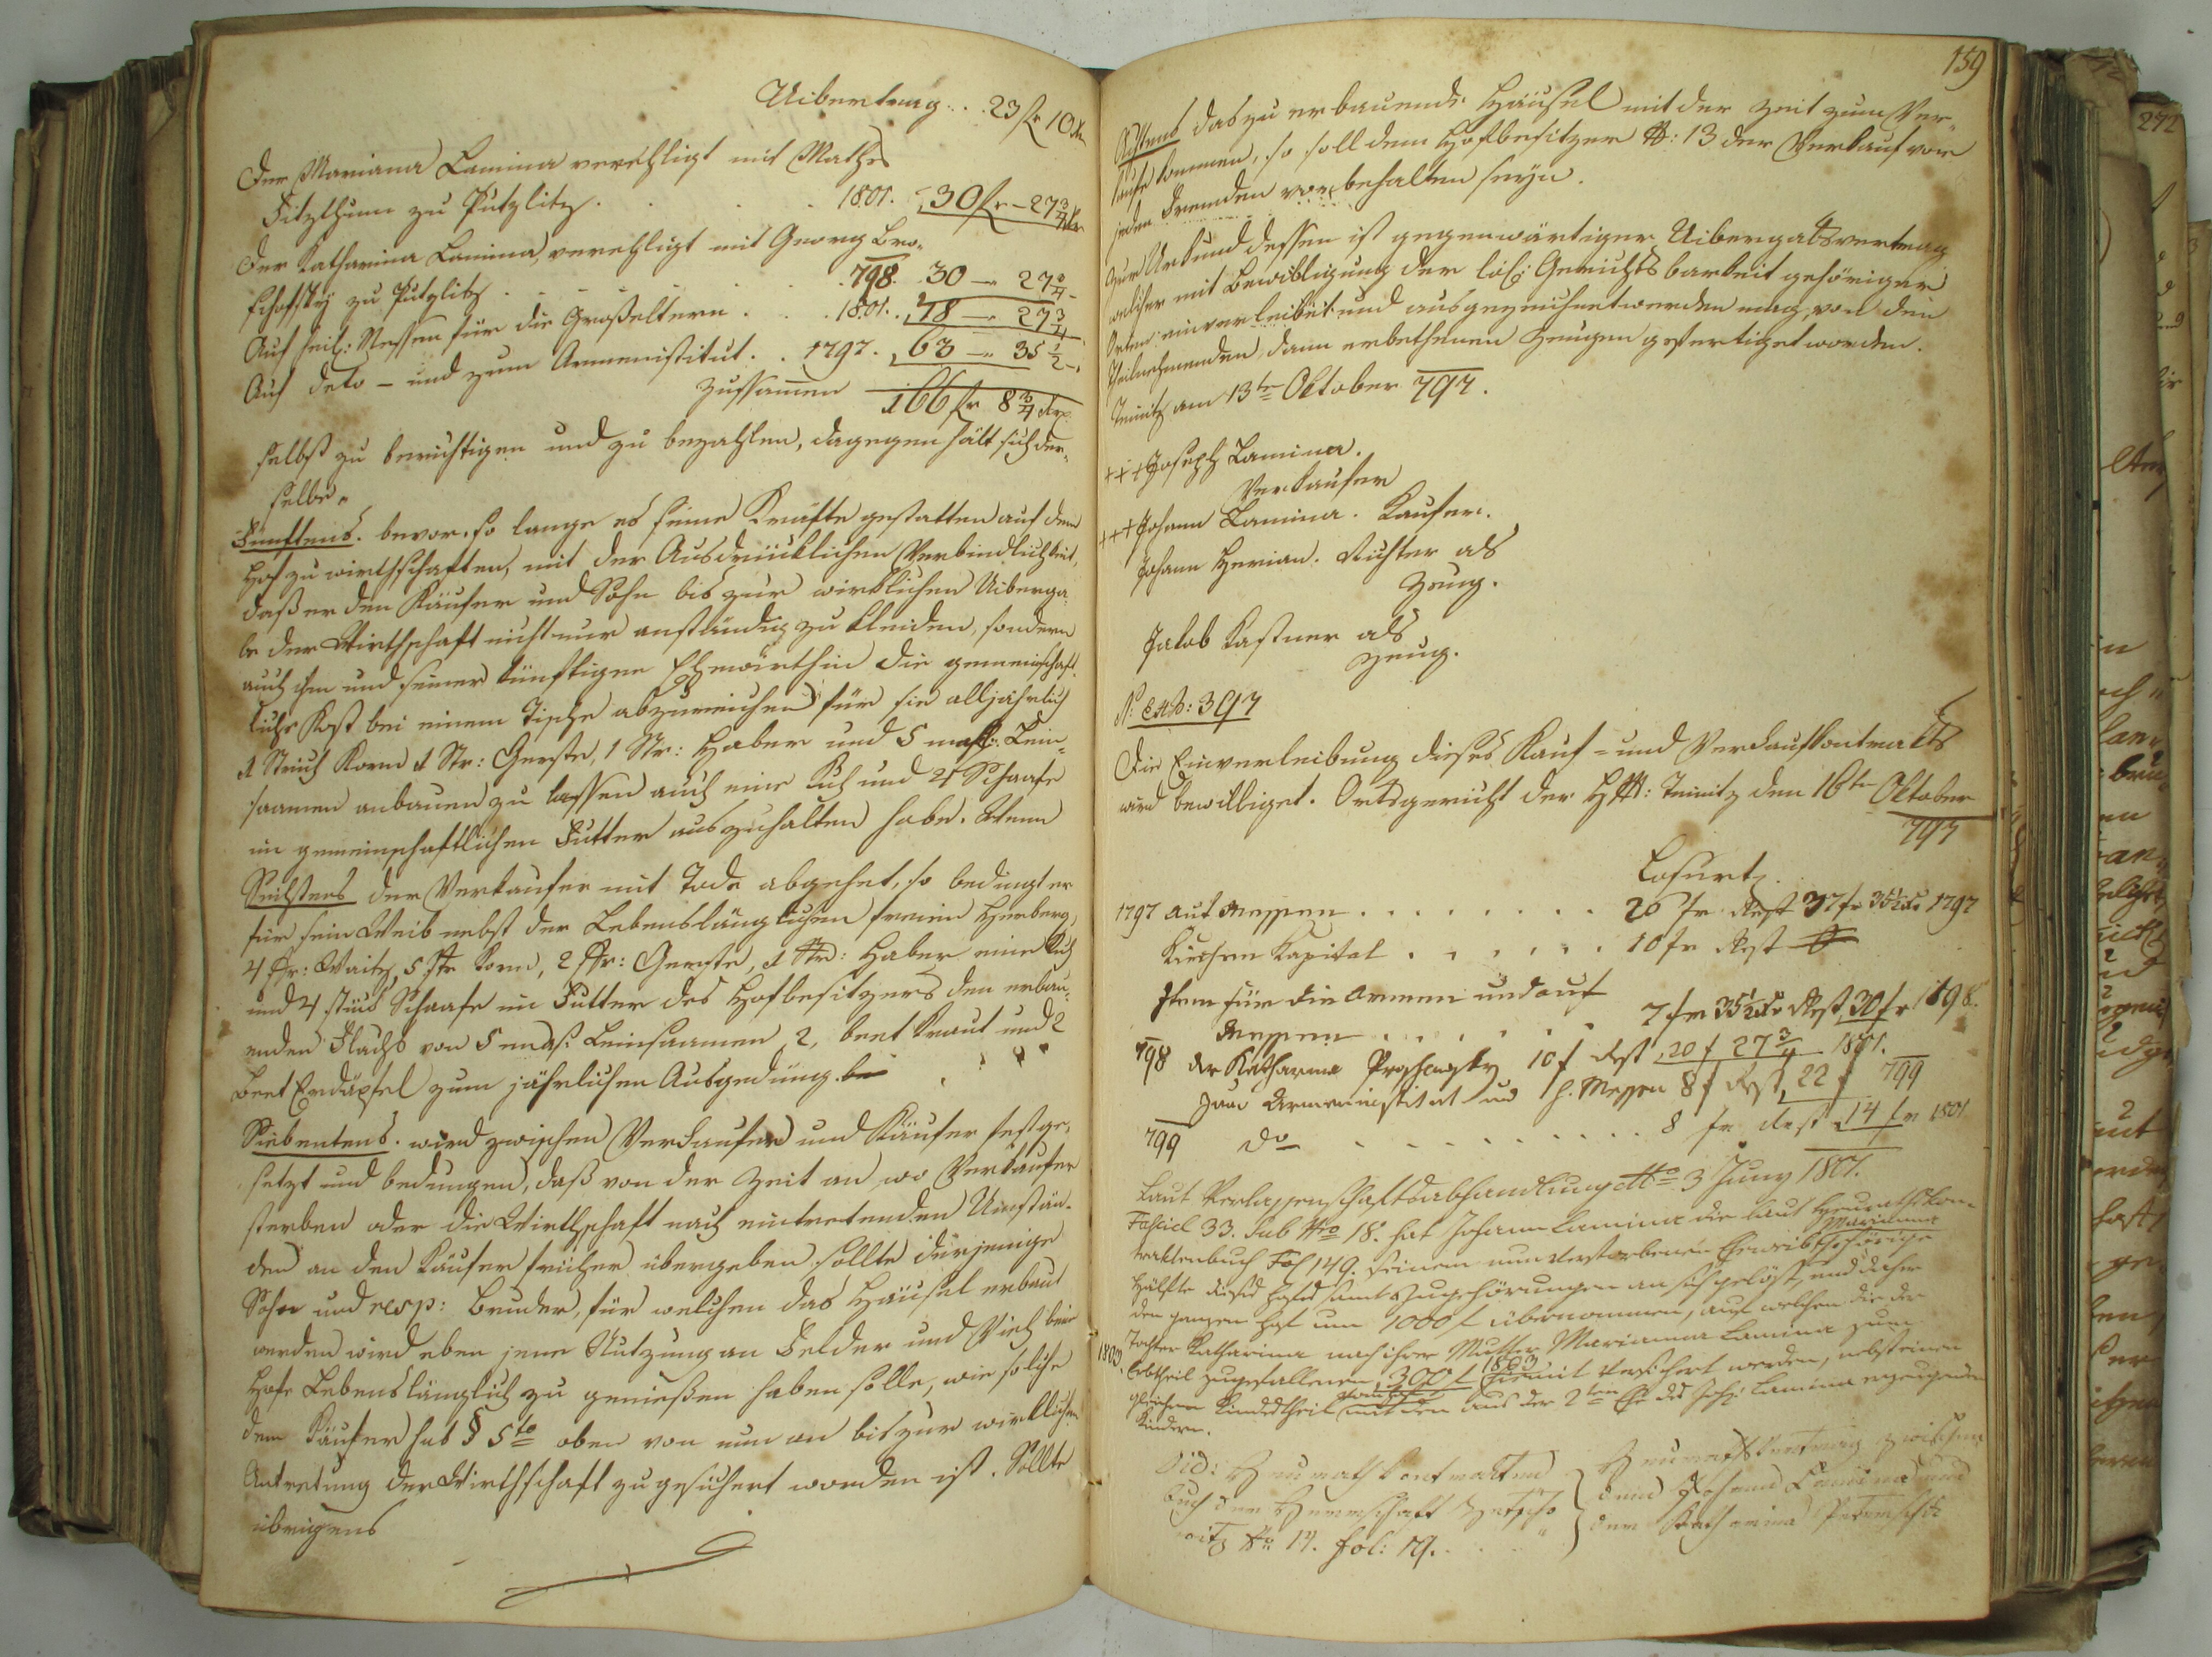 Uibertrag . . 23 fr 10 kr
Der Mariana Lamina verehligt mit Mathes
Fitzthum zu Putzlitz . . . 1801. 30 fr - 27 3/4 kr
Der Katharina Lamina verehligt mit Georg Bro-
schofsky zu Putzlitz . . . 798. 30 — 27 3/4 -
Auf heil: Messen für die Großeltern . . 1801. 18 — 27 3/4
Auf deto - und zum Armenistitut . . 1797. 63 — 35 1/2 -
Zusammen 166 fr 8 3/4 kr
selbst zu berichtigen und zu bezahlen, dagegen hält sich der-
selbe
Fünftens. bevor, so lange es seine Kräfte gestatten auf dem
Hof zu wirthschaften, mit der Ausdrücklichen Verbindlichkeit,
daß er den Käufer und Sohn bis zur wirklichen Uiberga-
be der Wirthschaft nicht nur anständig zu kleiden, sondern
auch ihm und seiner künftigen Ehewirthin die gemeinschaft-
liche Kost bei einem Tische abzureichen für sie alljährlich
1 Strich Korn 1 Str: Gerste, 1 Str: Haber und 5 maßl: Lein-
saamen anbauen zu lassen auch eine Kuh und 4 Schaafe
im gemeinschaftlichen Futter auszuhalten habe. Wenn
Sechstens der Verkaufer mit Tode abgehet, so bedingt er
für sein Weib nebst der Lebenslänglichen freien Herberg,
4 Str: Waitz, 5 Str Korn, 2 Str: Gerste, 1 Str: Haber eine Kuh
und 4 stück Schaafe im Futter des Hofbesitzers den erbau-
enden Flachs von 5 maß: Leinsaamen, 2, beet Kraut und 2
Beet Erdäpfel zum jährlichen Ausgeding
Siebentens. wird zwischen Verkaufer und Käufer festge-
setzt und bedungen, daß von der Zeit an, wo Verkäufer
sterben oder die Wirthschaft nach eintretenden Umstän-
den an den Käufer früher übergeben sollte derjenige
Sohn und resp: Bruder, für welchen das Häusel erbaut
werden wird eben jene Nutzung an Felder und Vieh beim
Hofe Lebenslänglich zu genießen haben solle, wie solche
dem Käufer sub § 5to oben von nun an bis zur wirklichen
Antretung der Wirthschaft zugesichert worden ist. Sollte
übrigens
159
Achtens das zu erbauende Häusel mit der Zeit zum Ver-
kaufe kommen, so soll dem Hofbesitzer N: 13 der Verkauf vor
jeden Fremden vorbehalten seyn.
Zur Urkund dessen ist gegenwärtiger Uibergabsvertrag
welcher mit Bewilligung der löbl: Gerichtsbarkeit gehöriger
Orten einverleibet und ausgezeichnet werden mag, von den
Theilnehmenden, dann erbethenen Zeugen gefertiget worden.
Teinitz am 13te Oktober 797.
+++ Joseph Lamina.
Verkaufer
+++ Johann Lamina. Kaufer.
Johann Herian. Richter als
Zeug.
Jakob Kastner als
Zeug.
N: Exh: 397
Die Einverleibung dieses Kauf- und Verkaufkontrakts
wird bewilliget. Ortsgericht der Hft: Teinitz den 16te Oktober
797
1797 auf Messen . . . . . . . . 20 fr Rest 37 fr 35 1/2 kr 1797
Kirchen Kapital . . . . . . 10 fr Rest 0
Item für die Armen und auf
Messen . . . . . . 7 fr 35 1/2 kr Rest 30 fr 1798.
798 der Katharina Proschofsky 10 f Rest 20 f 27 3/4 1801.
Zum Armeninstitut und h. Messen 8 f Rest 22 f 799
799 do . . . . . . . . . . 8 fr Rest 14 fr 1801
Laut Verlassenschaftsabhandlung dto 3 Juny 1801.
Fascicl 33. sub Nro 18. hat Johann Lamina die laut Heurathskon-
traktenbuch Fol 149. seinem nun verstorbenen Eheweib Marianna gehörige
Hälfte dieses Hofes samt Zugehörungen an sich gelöst, und daher
den ganzen Hof um 1000 f übernommen, auf welchen die der
1803. Tochter Katharina nach ihrer Mutter Marianna Lamina zum
Erbtheil zugefallenen 300 f 1803 hiemit versichert werden, nebst einen
gleichen Kindestheil mit den aus der 2ten Ehe des Joh: Lamina erzeugenden
Kindern.
Vid: Heurathskontrakten
buch der Herrschaft
N: 14. fol: 79.
Heurathsvertrag zwischen
dem Johann Lamina und
der Katharina